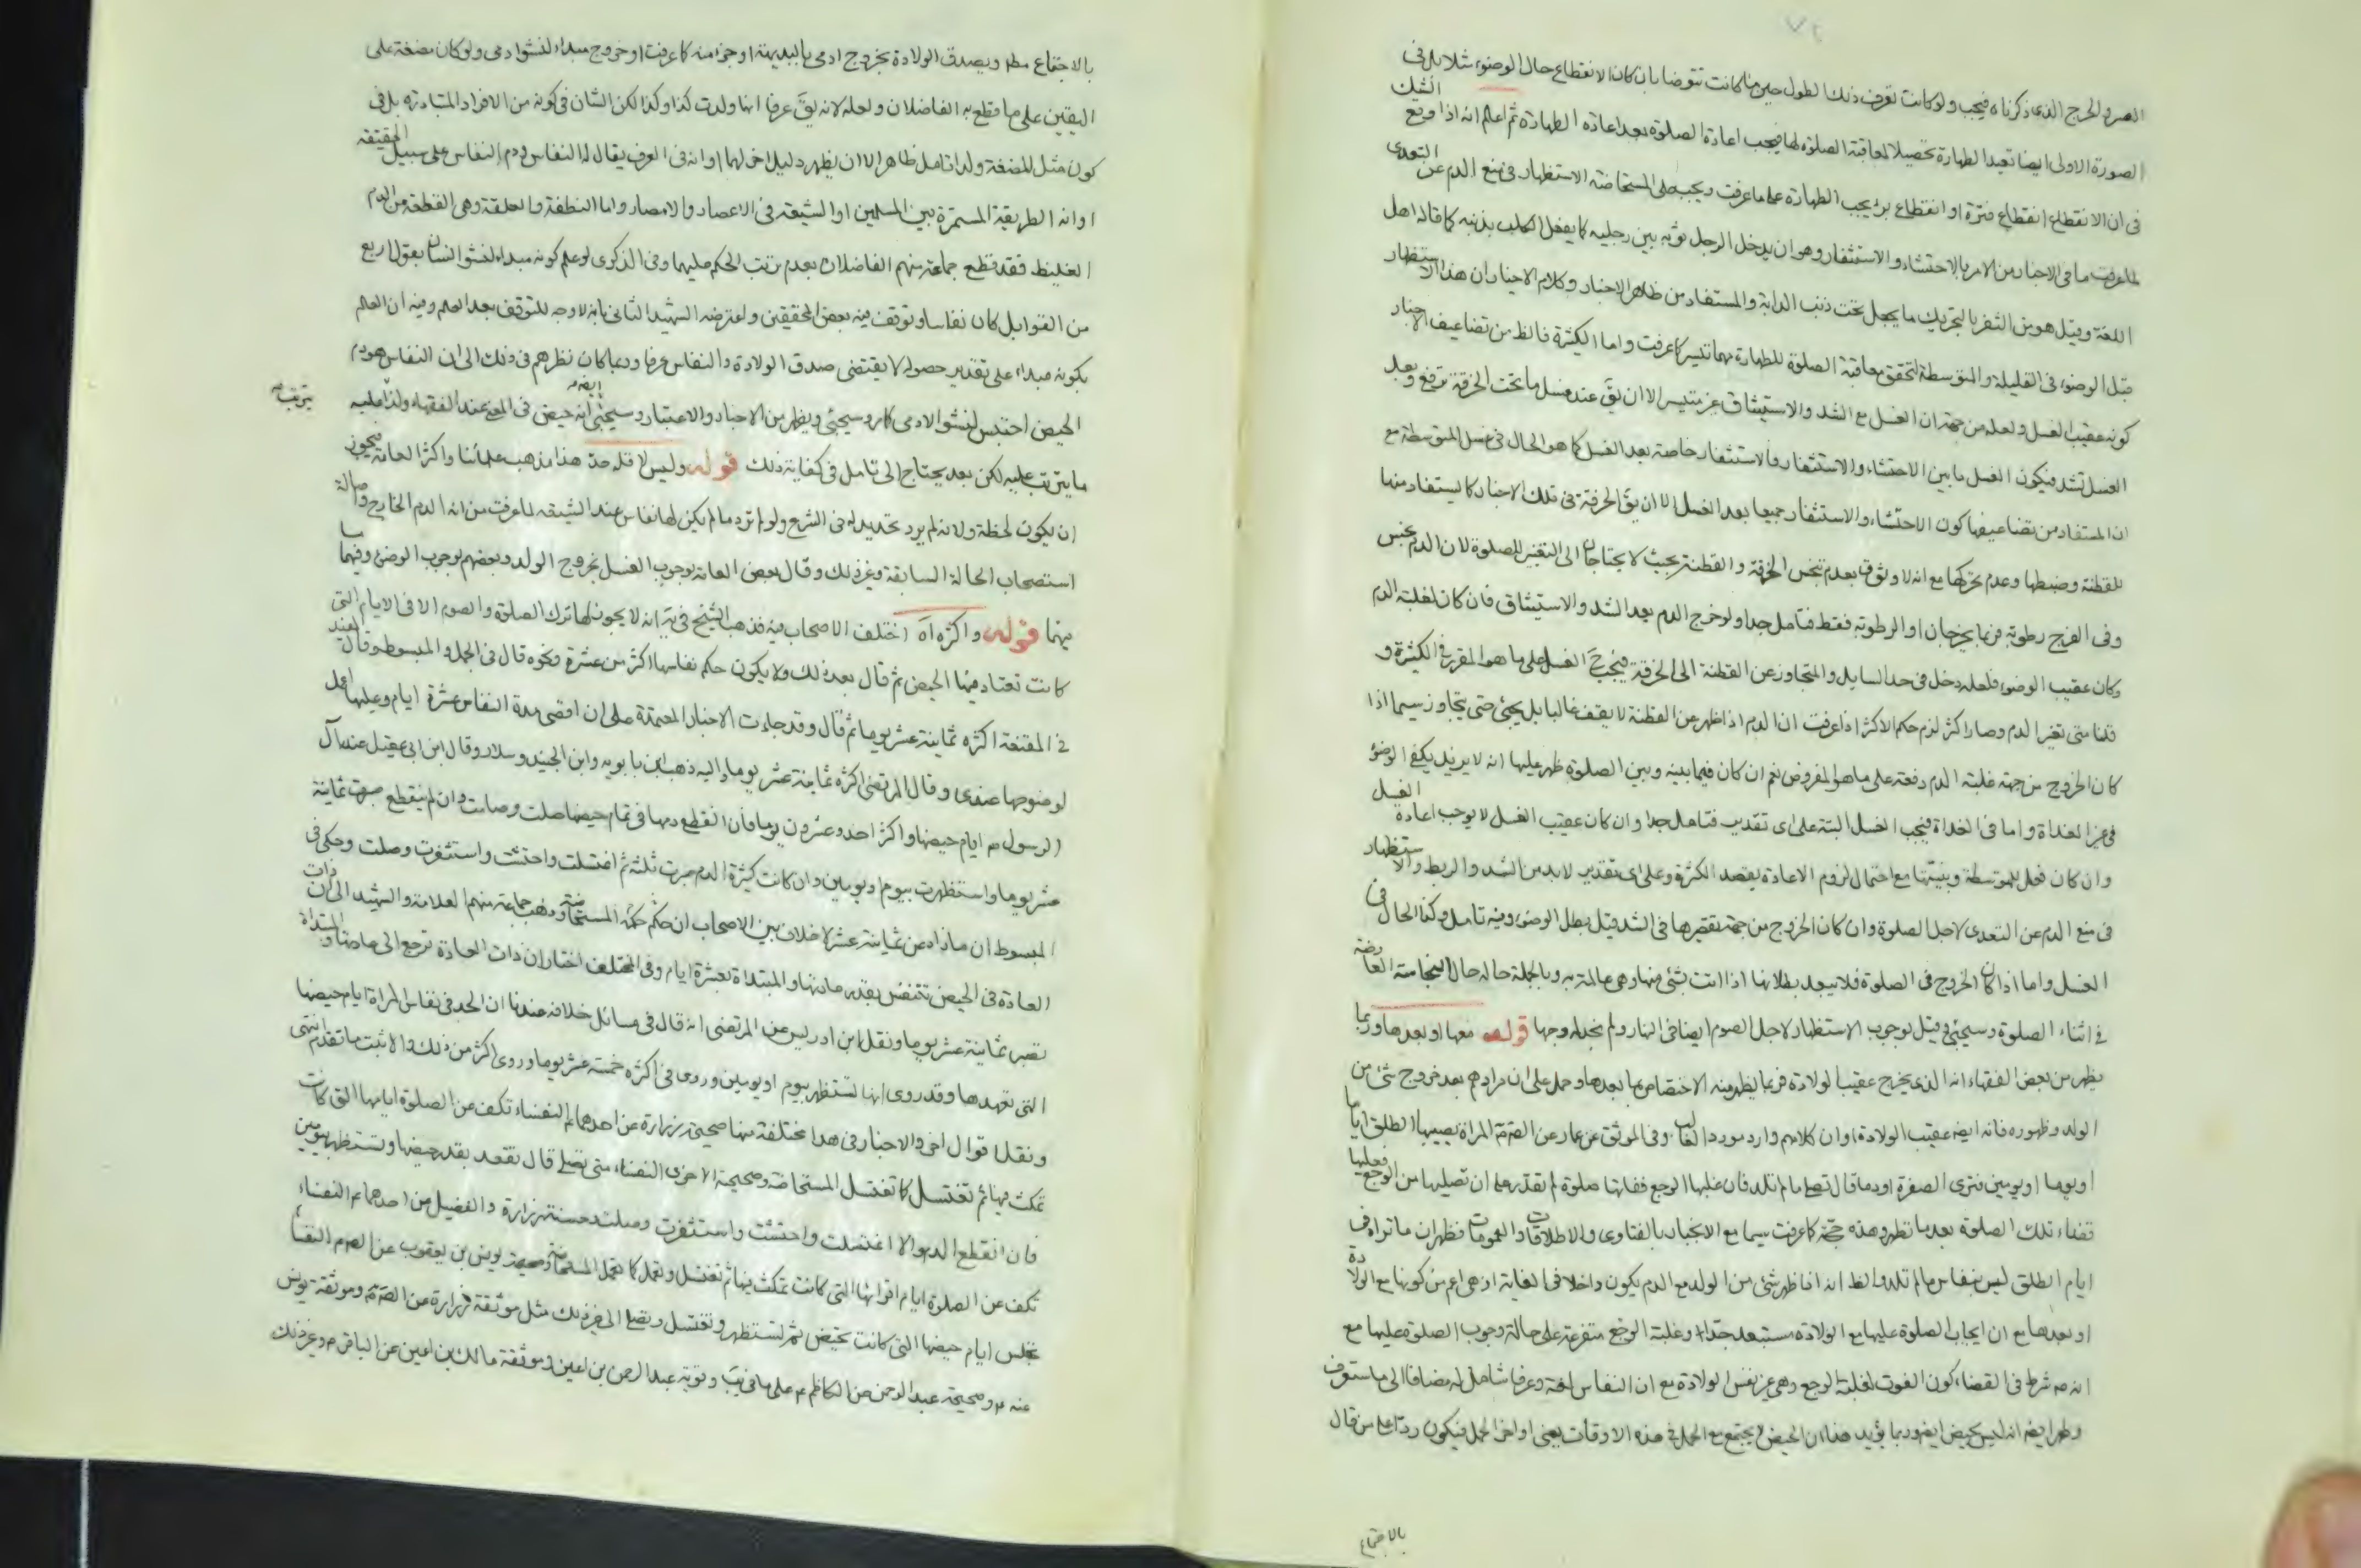 العسر والحرج الذى ذكرناه فيجب ولو كانت تعرف ذلك الطول حين ما كانت تتوضا بان كان الانقطاع حال الوضوء مثلا بل فى
الصورة الاولى ايضا تعيد الطهارة تحصيلا لمعاقبة الصلوة لها فيجب اعادة الصلوة بعد اعادة الطهارة ثم اعلم انه اذا وقع الشك
فى ان الانقطاع انقطاع فترة او انقطاع برء يجب الطهارة على ما عرفت ويجب على المستحاضة الاستظهار فى منع الدم عن التعدى
لما عرفت ما فى الاخبار من الامر بالاحتشاء والاستثفار وهو ان يدخل الرجل ثوبه بين رجليه كما يفعل الكلب بذنبه كما قاله اهل
اللغة وقيل هو من الثفر بالتحريك ما يجعل تحت ذنب الدابة والمستفاد من ظاهر الاخبار وكلام الاخيار ان هذا الاستظهار
قبل الوضوء فى القليلة والمتوسطة لتحقق معاقبة الصلوة للطهارة مهما تيسر كما عرفت واما الكثيرة فالظ من تضاعيف الاخبار
كونه عقيب الغسل ولعله من جهة ان الغسل مع الشد والاستيثاق غير متيسر الا ان يق عند غسل ما تحت الخرقة ترفع وبعد
الغسل تشد فيكون الغسل ما بين الاحتشاء والاستثفار والاستثفار خاصة بعد الغسل كما هو الحال فى غسل المتوسطة مع
ان المستفاد من تضاعيفها كون الاحتشاء والاستثفار جميعا بعد الغسل الا ان يق الخرقة فى تلك الاخبار كما يستفاد منها
للقطنة وضبطها وعدم تحركها مع انه لا وثوق بعدم تنجس الخرقة والقطنة بحيث لا يحتاجان الى التغيير للصلوة لان الدم نجس
وفى الفرج رطوبة فربما يخرجان او الرطوبة فقط فتامل جدا ولو خرج الدم بعد الشد والاستيثاق فان كان لغلبة الدم
وكان عقيب الوضوء فلعله دخل فى حد السايل والمتجاوز عن القطنة الى الخرقة فيجب ح الغسل على ما هو المقرر فى الكثيرة و
قلنا متى تغير الدم وصار اكثر لزم حكم الاكثر اذا عرفت ان الدم اذا ظهر من القطنة لا يقف غالبا بل يجئ حتى يتجاوز سيما اذا
كان الخروج من جهة غلبة الدم دفعة على ما هو المفروض نعم ان كان فيما بينه وبين الصلوة ظهر عليها انه لا يزيد يكفى الوضوء
فى غير الغداة واما فى الغداة فيجب الغسل البتة على اى تقدير فتامل جدا وان كان عقيب الغسل لا يوجب اعادة الغسل
وان كان فعل للمتوسطة وبنيتها مع احتمال لزوم الاعادة بقصد الكثرة وعلى اى تقدير لابد من الشد والربط والاستظهار
فى منع الدم عن التعدى لاجل الصلوة وان كان الخروج من جهة تقصيرها فى الشد قيل بطل الوضوء وفيه تامل وكذا الحال فى
الغسل واما اذا كان الخروج فى الصلوة فلا يبعد بطلانها اذا اتت بشئ منها وهى عالمة به وبالجملة حاله حال النجاسة العارضة
فى اثناء الصلوة وسيجئ وقيل بوجوب الاستظهار لاجل الصوم ايضا فى النهار ولم نجد له وجها قوله معها او بعدها وربما
يظهر من بعض الفقهاء انه الذى يخرج عقيب الولادة فربما يظهر منه الاختصاص بما بعدها وحمل على ان مرادهم بعد خروج شئ من
الولد وظهوره فانه ايض عقيب الولادة او ان كلامهم وارد مورد الغالب وفى الموثق عن عمار عن الص ع فى المراة يصيبها الطلق اياما
او يوما او يومين فترى الصفرة او دما قال تصلى ما لم تلد فان غلبها الوجع ففاتها صلوة لم تقدر على ان تصليها من الوجع فعليها
قضاء تلك الصلوة بعد ما تطهر وهذه حجة كما عرفت سيما مع الانجبار بالفتاوى والاطلاقات والعمومات فظهر ان ما تراه فى
ايام الطلق ليس بنفاس ما لم تلد والظ انه اذا ظهر شئ من الولد مع الدم يكون داخلا فى الغاية اذ هى اعم من كونها مع الولادة
او بعدها مع ان ايجاب الصلوة عليها مع الولادة مستبعد جدا وغلبة الوجع متفرعة على حالة وجوب الصلوة عليها مع
انه ع شرط فى القضاء كون الفوت لغلبة الوجع وهى غير نفس الولادة مع ان النفاس لغة وعرفا شامل له مضافا الى ما ستعرف
وظهر ايض انه ليس بحيض ايض وربما يؤيد هذا ان الحيض لا يجتمع مع الحمل فى هذه الاوقات يعنى اواخر الحمل فيكون ردا على من قال
بالاجتماع
بالاجتماع مطلقا ويصدق الولادة بخروج ادمى بالبديهة او جزء منه كما عرفت او خروج مبداء النشو ادمى ولو كان مضغة على
اليقين على ما قطع به الفاضلان ولعله لانه يق عرفا انها ولدت كذا وكذا لكن الشان فى كونه من الافراد المتبادرة بل فى
كون مثل المضغة ولدا تامل ظاهر الا ان يظهر دليل اخر لهما او انه فى العرف يقال له النفاس ودم النفاس على سبيل الحقيقة
او انه الطريقة المستمرة بين المسلمين او الشيعة فى الاعصار والامصار واما النطفة والعلقة وهى القطعة من الدم
الغليظ فقد قطع جماعة منهم الفاضلان بعدم ترتب الحكم عليهما وفى الذكرى لو علم كونه مبداء لنشو انسان بقول اربع
من القوابل كان نفاسا وتوقف فيه بعض المحققين واعترضه الشهيد الثانى بانه لا وجه للتوقف بعد العلم وفيه ان العلم
بكونه مبداء على تقدير حصوله لا يقتضى صدق الولادة والنفاس عرفا وربما كان نظرهم فى ذلك الى ان النفاس هو دم
الحيض احتبس لنشو الادمى كما مر وسيجئ ويظهر من الاخبار والاعتبار وسيجئ ايض انه حيض فى المعنى عند الفقهاء ولذا عليه يترتب
ما يترتب عليه لكن بعد يحتاج الى تامل فى كفاية ذلك قوله وليس لاقله حد هذا مذهب علمائنا واكثر العامة فيجوز
ان يكون لحظة ولانه لم يرد تحديد له فى الشرع ولو لم تر دما لم يكن لها نفاس عند الشيعة لما عرفت من انه الدم الخارج واصالة
استصحاب الحالة السابقة وغير ذلك وقال بعض العامة بوجوب الغسل بخروج الولد وبعضهم بوجوب الوضوء وفيهما ما
فيهما قوله واكثره اه اختلف الاصحاب فيه فذهب الشيخ فى ية انه لا يجوز لها ترك الصلوة والصوم الا فى الايام التى
كانت تعتاد فيها الحيض ثم قال بعد ذلك ولا يكون حكم نفاسها اكثر من عشرة ونحوه قال فى الجمل والمبسوط وقال المفيد
فى المقنعة اكثره ثمانية عشر يوما ثم قال وقد جاءت الاخبار المعتمدة على ان اقصى مدة النفاس عشرة ايام وعليها اعمل
لوضوحها عندى وقال المرتضى اكثره ثمانية عشر يوما واليه ذهب ابن بابويه وابن الجنيد وسلار وقال ابن ابى عقيل عند آل
الرسول ص ايام حيضها واكثر احد وعشرون يوما فان انقطع دمها فى تمام حيضها صلت وصامت وان لم ينقطع صبرت ثمانية
عشر يوما واستظهرت بيوم او يومين وان كانت كثيرة الدم صبرت ثلثة ثم اغتسلت واحتشت واستثفرت وصلت وحكى فى
المبسوط ان ما زاد عن ثمانية عشر لا خلاف بين الاصحاب ان حكم حكم المستحاضة وذهب جماعة منهم العلامة والشهيد الى ان ذات
العادة فى الحيض تتنفس بقدر عادتها والمبتداة بعشرة ايام وفى المختلف اختار ان ذات العادة ترجع الى عادتها والمبتداة
تصبر ثمانية عشر يوما ونقل ابن ادريس عن المرتضى انه قال فى مسائل خلافه عندنا ان الحد فى نفاس المراة ايام حيضها
التى تعهدها وقد روى انها تستظهر بيوم او يومين وروى فى اكثره خمسة عشر يوما وروى اكثر من ذلك والاثبت ما تقدم انتهى
ونقل اقوال اخر والاخبار فى هذا مختلفة منها صحيحة زرارة عن احدهما ع النفساء تكف عن الصلوة ايامها التى كانت
تمكث فيها ثم تغتسل كما تغتسل المستحاضة وصحيحة الاخرى النفساء متى تصلى قال تقعد بقدر حيضها وتستظهر بيومين
فان انقطع الدم والا اغتسلت واحتشت واستثفرت وصلت وحسنة زرارة والفضيل عن احدهما ع النفساء
تكف عن الصلوة ايام اقرائها التى كانت تمكث فيها ثم تغتسل وتعمل كما تعمل المستحاضة وصحيحة يونس بن يعقوب عن الص ع النفساء
تجلس ايام حيضها التى كانت تحيض ثم تستظهر وتغتسل وتصلى الى غير ذلك مثل موثقة زرارة عن الص ع وموثقة يونس
عنه ع وصحيحة عبد الرحمن عن الكاظم ع على ما فى يب وقوية عبد الرحمن بن اعين وموثقة مالك بن اعين عن الباقر ع وغير ذلك